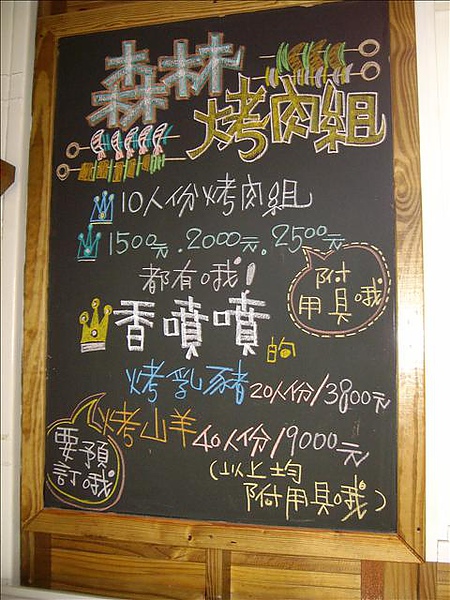 森林
烤肉組
10人份烤肉組
1500元.2000元.2500元
都有哦!
附
用具哦
香噴噴的
烤乳豬20人份/3800元
烤山羊40人份/9000元
要預
訂哦
(以上均
附用具哦)